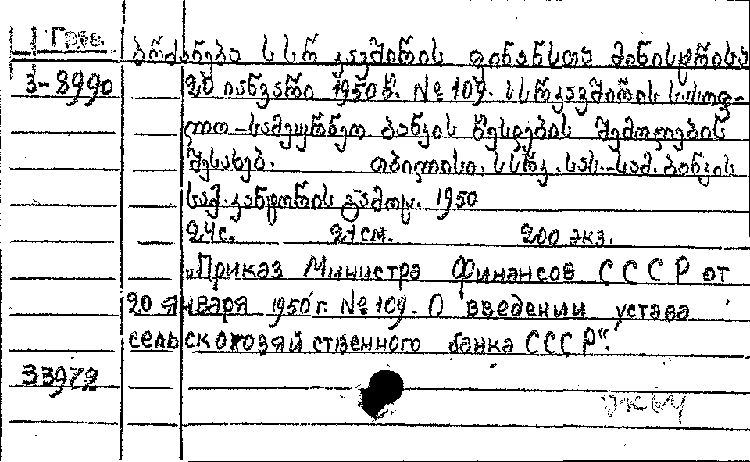 Груз.
3-8990
ბრძანება სსრ კავშირის ფინანსთა მინისტრისა
20 იანვარი 1950 წ. № 109. სსრკავშირის სასოფ-
ლო-სამეურნეო ბანკის წესდების შემოღების
შესახებ. თბილისი, სსრკ. სას.-სამ. ბანკის
საქ. კანტორის გამოც. 1950
24с. 21 см. 200 экз.
„Приказ Министра Финансов СССР от
20 января 1950 г. № 109. О введении устава
сельскохозяйственного банка СССР".
33972